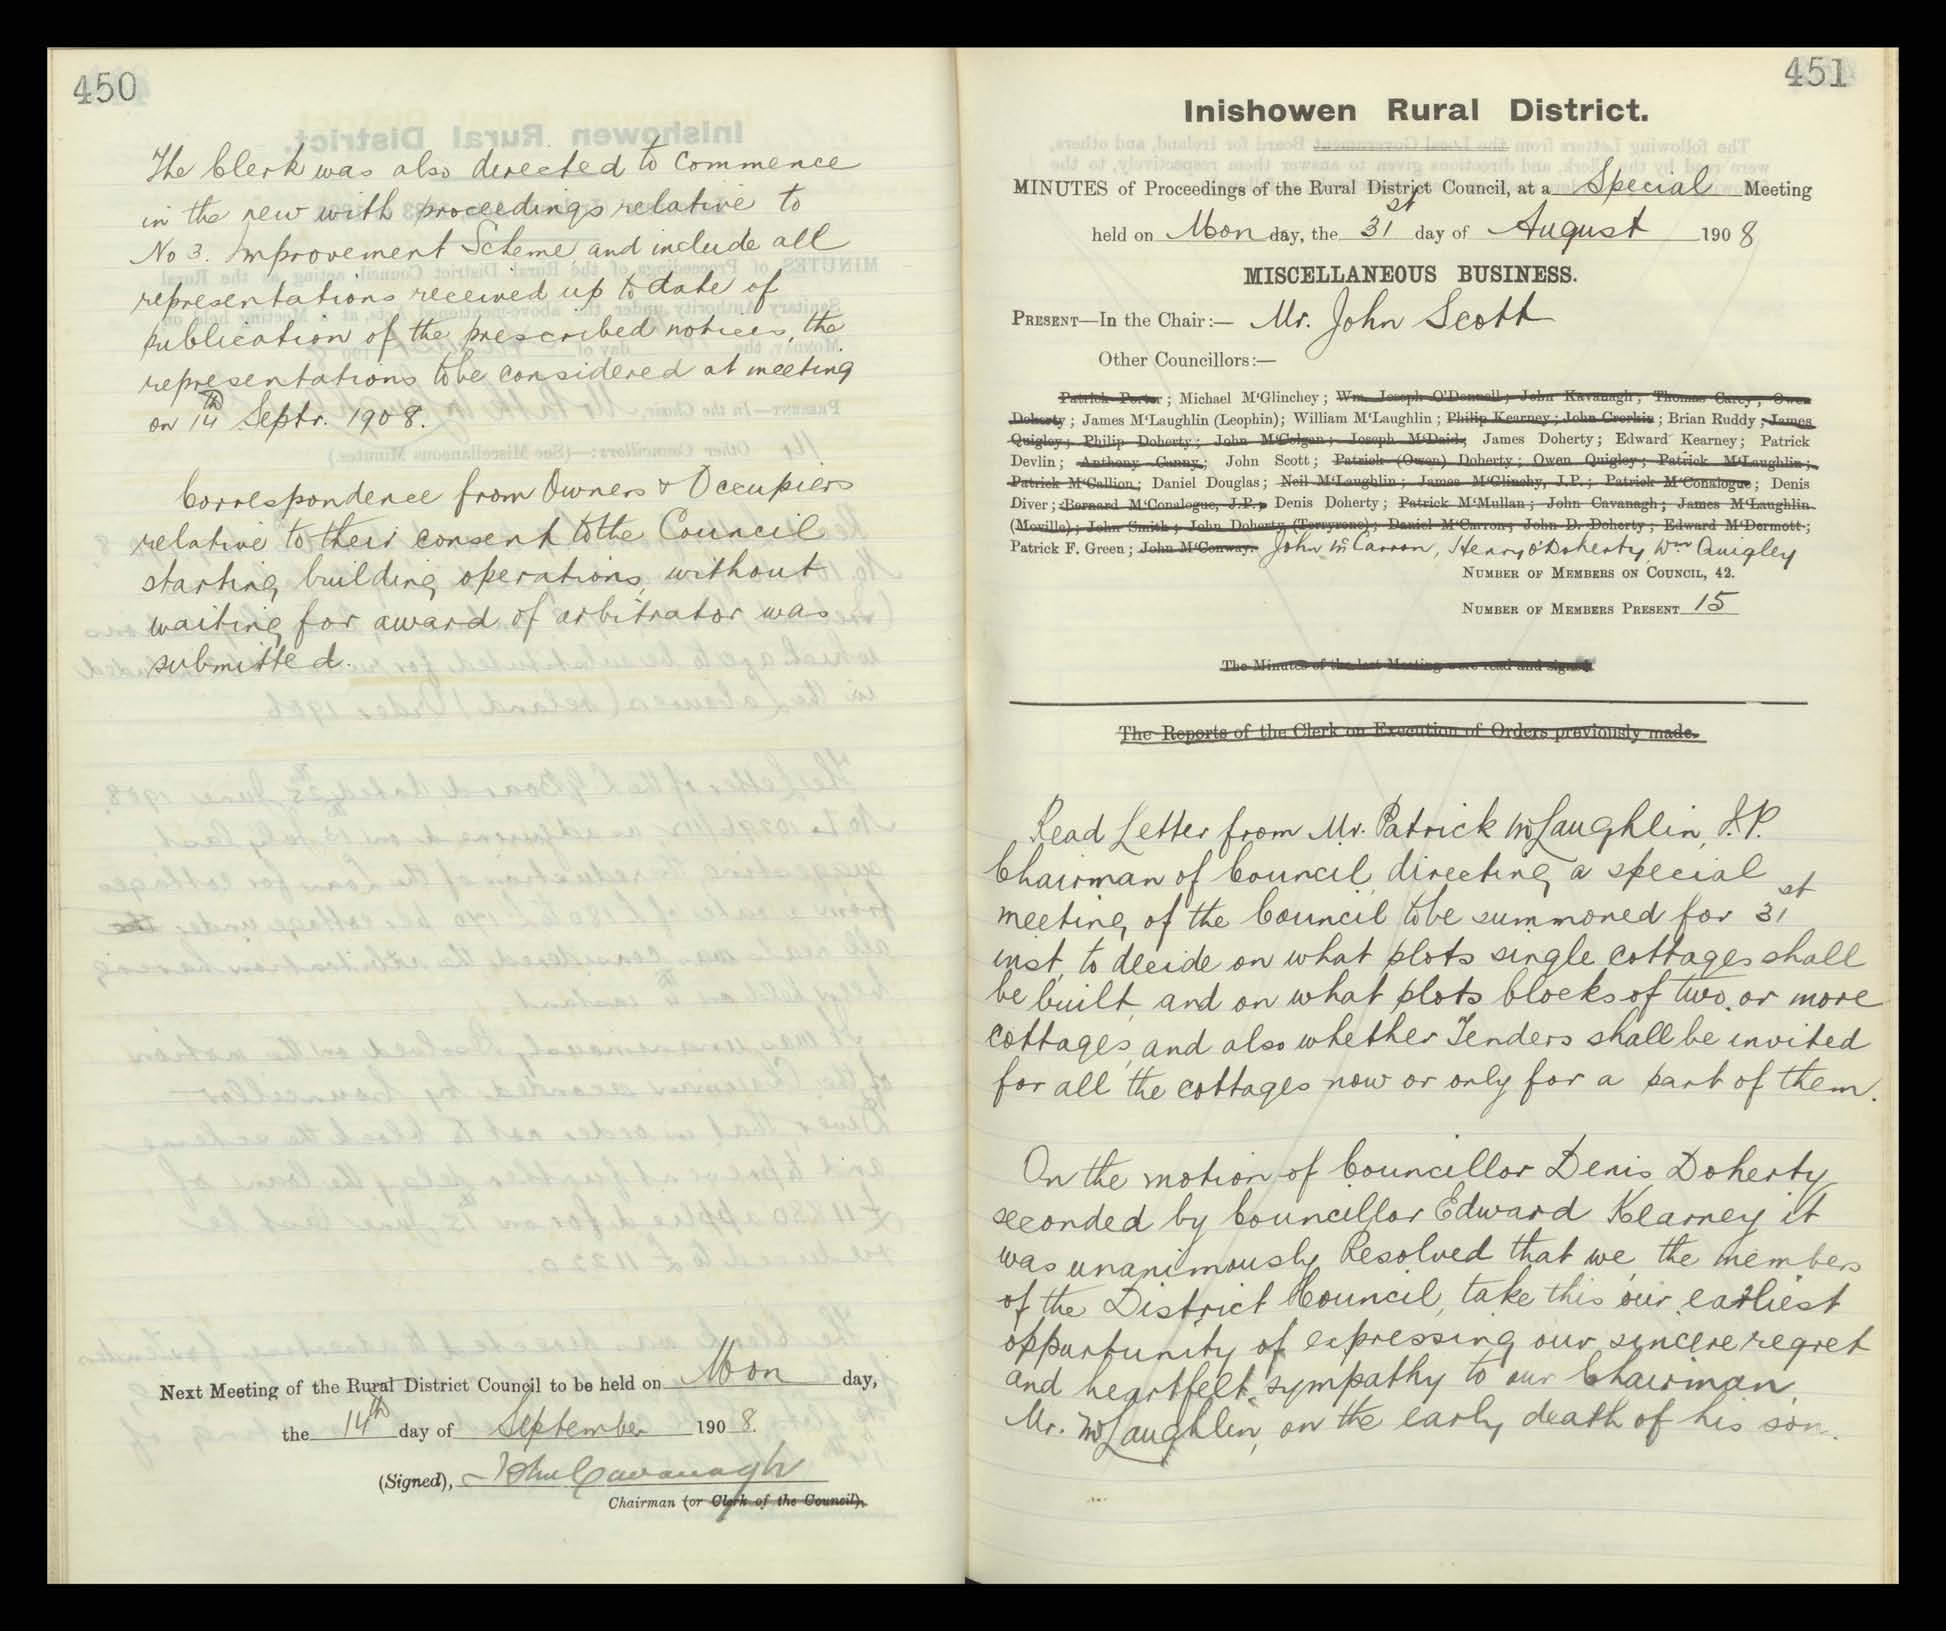 450
The Clerk was also directed to commence
in the new with proceedings relative to
No 3. Improvement Scheme, and include all
representations received up to date of
publication of the prescribed notices, the
representations to be considered at meeting
on 14th Septr. 1908.
Correspondence from Owners & Occupiers
relative to their consent to the Council
starting building operations, without
waiting for award of arbitrator was
submitted.
Next Meeting of the Rural District Council to be held on Mon day,
the 14th day of September 1908.
(Signed), John Cavanagh
Chairman (or Clerk of the Council).
451
Inishowen Rural District.
MINUTES of Proceedings of the Rural District Council, at a Special Meeting
held on Mon day, the 31st day of August 1908
MISCELLANEOUS BUSINESS.
PRESENT—In the Chair:— Mr. John Scott
Other Councillors:—
Patrick Porter; Michael M'Glinchey; Wm. Joseph O'Donnell; John Kavanagh; Thomas Carey; Owen
Doherty; James M'Laughlin (Leophin); William M'Laughlin; Philip Kearney; John Crerkin; Brian Ruddy; James
Quigley; Philip Doherty; John M'Colgan; Joseph M'Daid; James Doherty; Edward Kearney; Patrick
Devlin; Anthony Canny; John Scott; Patrick (Owen) Doherty; Owen Quigley; Patrick M'Laughlin;
Patrick M'Callion; Daniel Douglas; Neil M'Laughlin; James M'Glinchy, J.P.; Patrick M'Conalogue; Denis
Diver; Bernard M'Conalogue, J.P.; Denis Doherty; Patrick M'Mullan; John Cavanagh; James M'Laughlin
(Moville); John Smith; John Doherty (Terryrone); Daniel M'Carron; John D. Doherty; Edward M'Dermott;
Patrick F. Green; John M'Conway. John McCarron, Henry O'Doherty, Wm Quigley
NUMBER OF MEMBERS ON COUNCIL, 42.
NUMBER OF MEMBERS PRESENT 15
The Minutes of the last Meeting were read and signed
The Reports of the Clerk on Execution of Orders previously made.
Read Letter from Mr. Patrick McLaughlin, J.P.
Chairman of Council, directing a special
meeting of the Council to be summoned for 31st
inst, to decide on what plots single cottages shall
be built, and on what plots blocks of two or more
cottages, and also whether Tenders shall be invited
for all the cottages now or only for a part of them.
On the motion of Councillor Denis Doherty
seconded by Councillor Edward Kearney it
was unanimously Resolved that we, the members
of the District Council, take this our earliest
opportunity of expressing our sincere regret
and heartfelt sympathy to our Chairman,
Mr. McLaughlin, on the early death of his son.